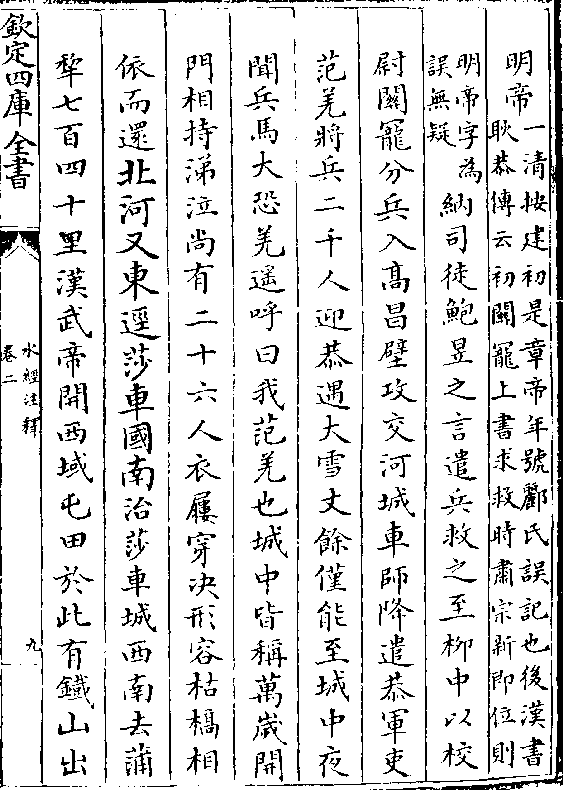 明帝一清按建初是章帝年號酈氏誤記也後漢書
耿恭傳云初關寵上書求救時肅宗新即位則
明帝字為
誤無疑
納司徒鮑昱之言遣兵救之至柳中以校
尉關寵分兵入高昌壁攻交河城車師降遣恭軍吏
范羌將兵二千人迎恭遇大雪丈餘僅能至城中夜
聞兵馬大恐羌遥呼曰我范羌也城中皆稱萬歲開
門相持涕泣尚有二十六人衣屨穿決形容枯槁相
依而還北河又東逕莎車國南治莎車城西南去蒲
犂七百四十里漢武帝開西域屯田於此有鐵山出
欽定四庫全書
水經注釋
卷二
九